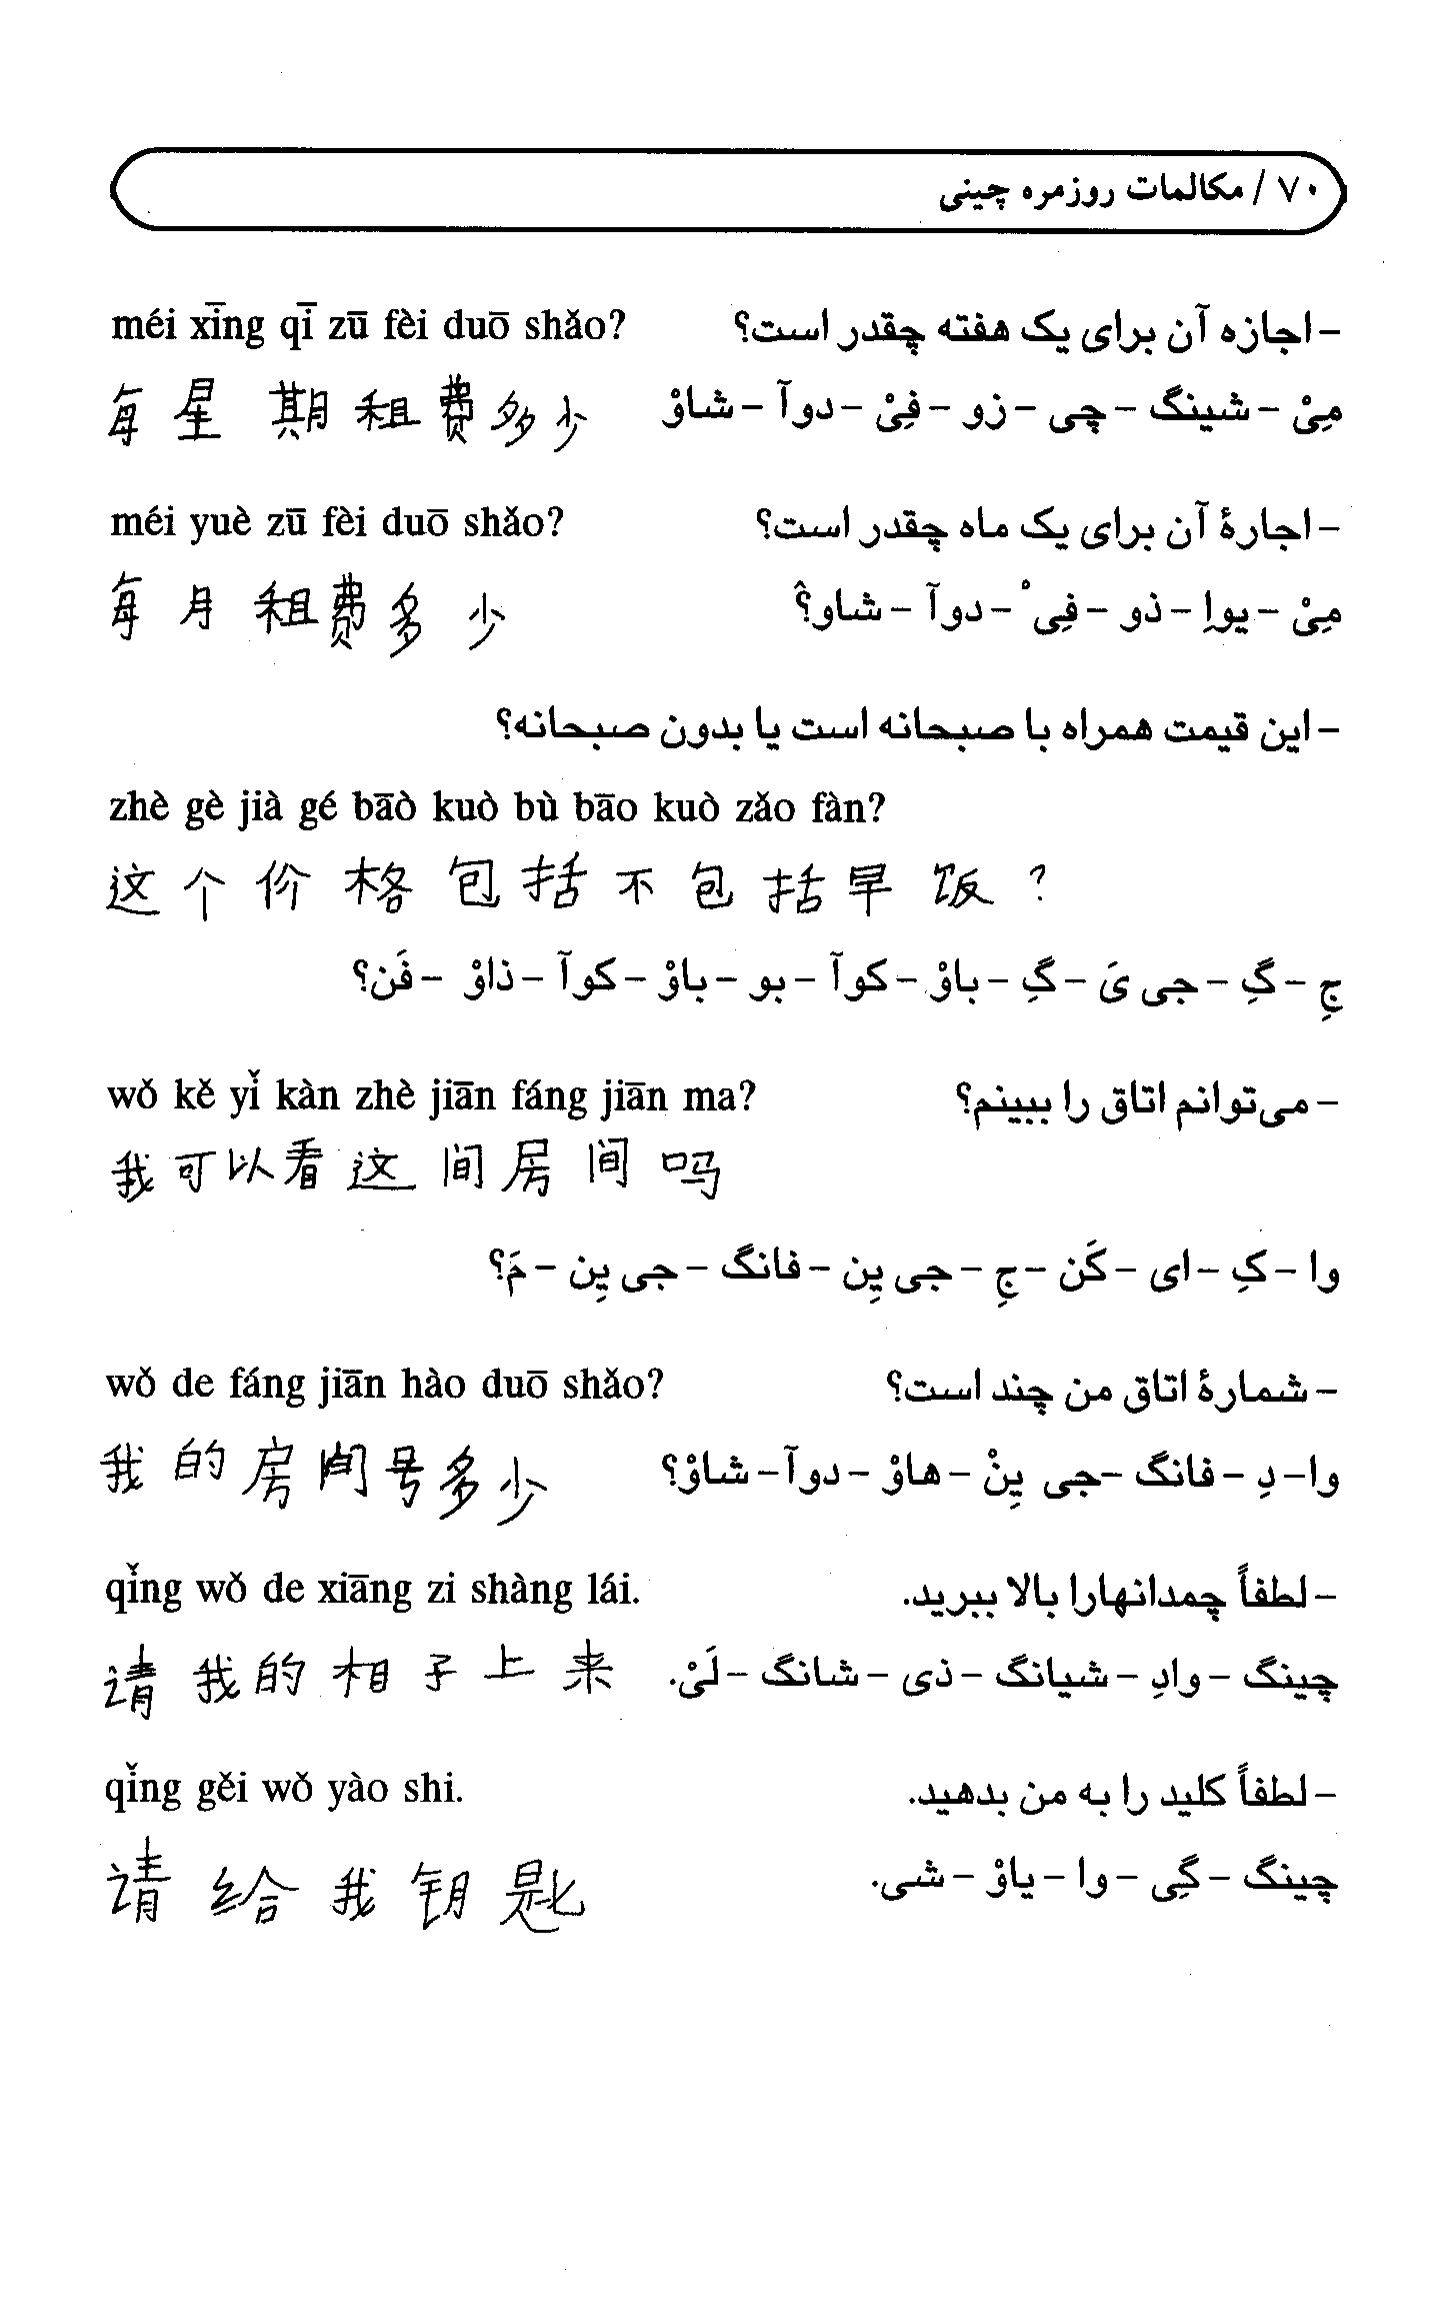 ۷۰ / مکالمات روزمره چینی
– اجازه آن برای یک هفته چقدر است؟ méi xīng qī zū fèi duō shǎo?
مِیْ – شینگ – چی – زو – فِیْ – دوآ – شاوْ 每星期租费多少
– اجارهٔ آن برای یک ماه چقدر است؟ méi yuè zū fèi duō shǎo?
مِیْ – یواِ – ذو – فِیْ – دوآ – شاوْ؟ 每月租费多少
– این قیمت همراه با صبحانه است یا بدون صبحانه؟
zhè gè jià gé bāò kuò bù bāo kuò zǎo fàn?
这个价格包括不包括早饭?
جِ – گِ – جی یَ – گِ – باوْ – کوآ – بو – باوْ – کوآ – ذاوْ – فَن؟
– می‌توانم اتاق را ببینم؟ wǒ kě yǐ kàn zhè jiān fáng jiān ma?
我可以看这间房间吗
وا – کِ – ای – کَن – جِ – جی یِن – فانگ – جی یِن – مَ؟
– شمارهٔ اتاق من چند است؟ wǒ de fáng jiān hào duō shǎo?
وا – دِ – فانگ – جی یِنْ – هاوْ – دوآ – شاوْ؟ 我的房间号多少
– لطفاً چمدانهارا بالا ببرید. qǐng wǒ de xiāng zi shàng lái.
چینگ – وادِ – شیانگ – ذی – شانگ – لَیْ. 请我的相子上来
– لطفاً کلید را به من بدهید. qǐng gěi wǒ yào shi.
چینگ – گِی – وا – یاوْ – شی. 请给我钥匙